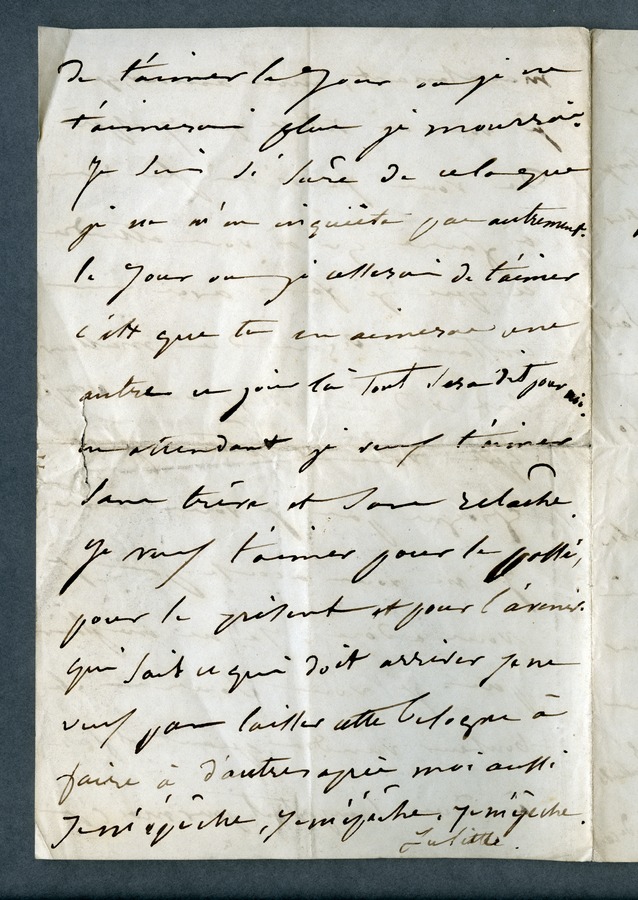 de t'aimer le jour ou je ne
t'aimerai plus je mourrai.
Je suis si sûre de cela que
je ne m'en inquiète pas autrement.
le jour ou je cesserai de t'aimer
c'est que tu en aimeras une
autre ce jour là tout sera dit pour moi.
en attendant je veux t'aimer
sans trève et sans relâche.
Je veux t'aimer pour le passé,
pour le présent et pour l'avenir.
qui sait ce qui doit arriver je ne
veux pas laisser cette besogne à
faire à d'autres après moi aussi
je m'épêche, je m'épêche, je m'épêche.
Juliette.